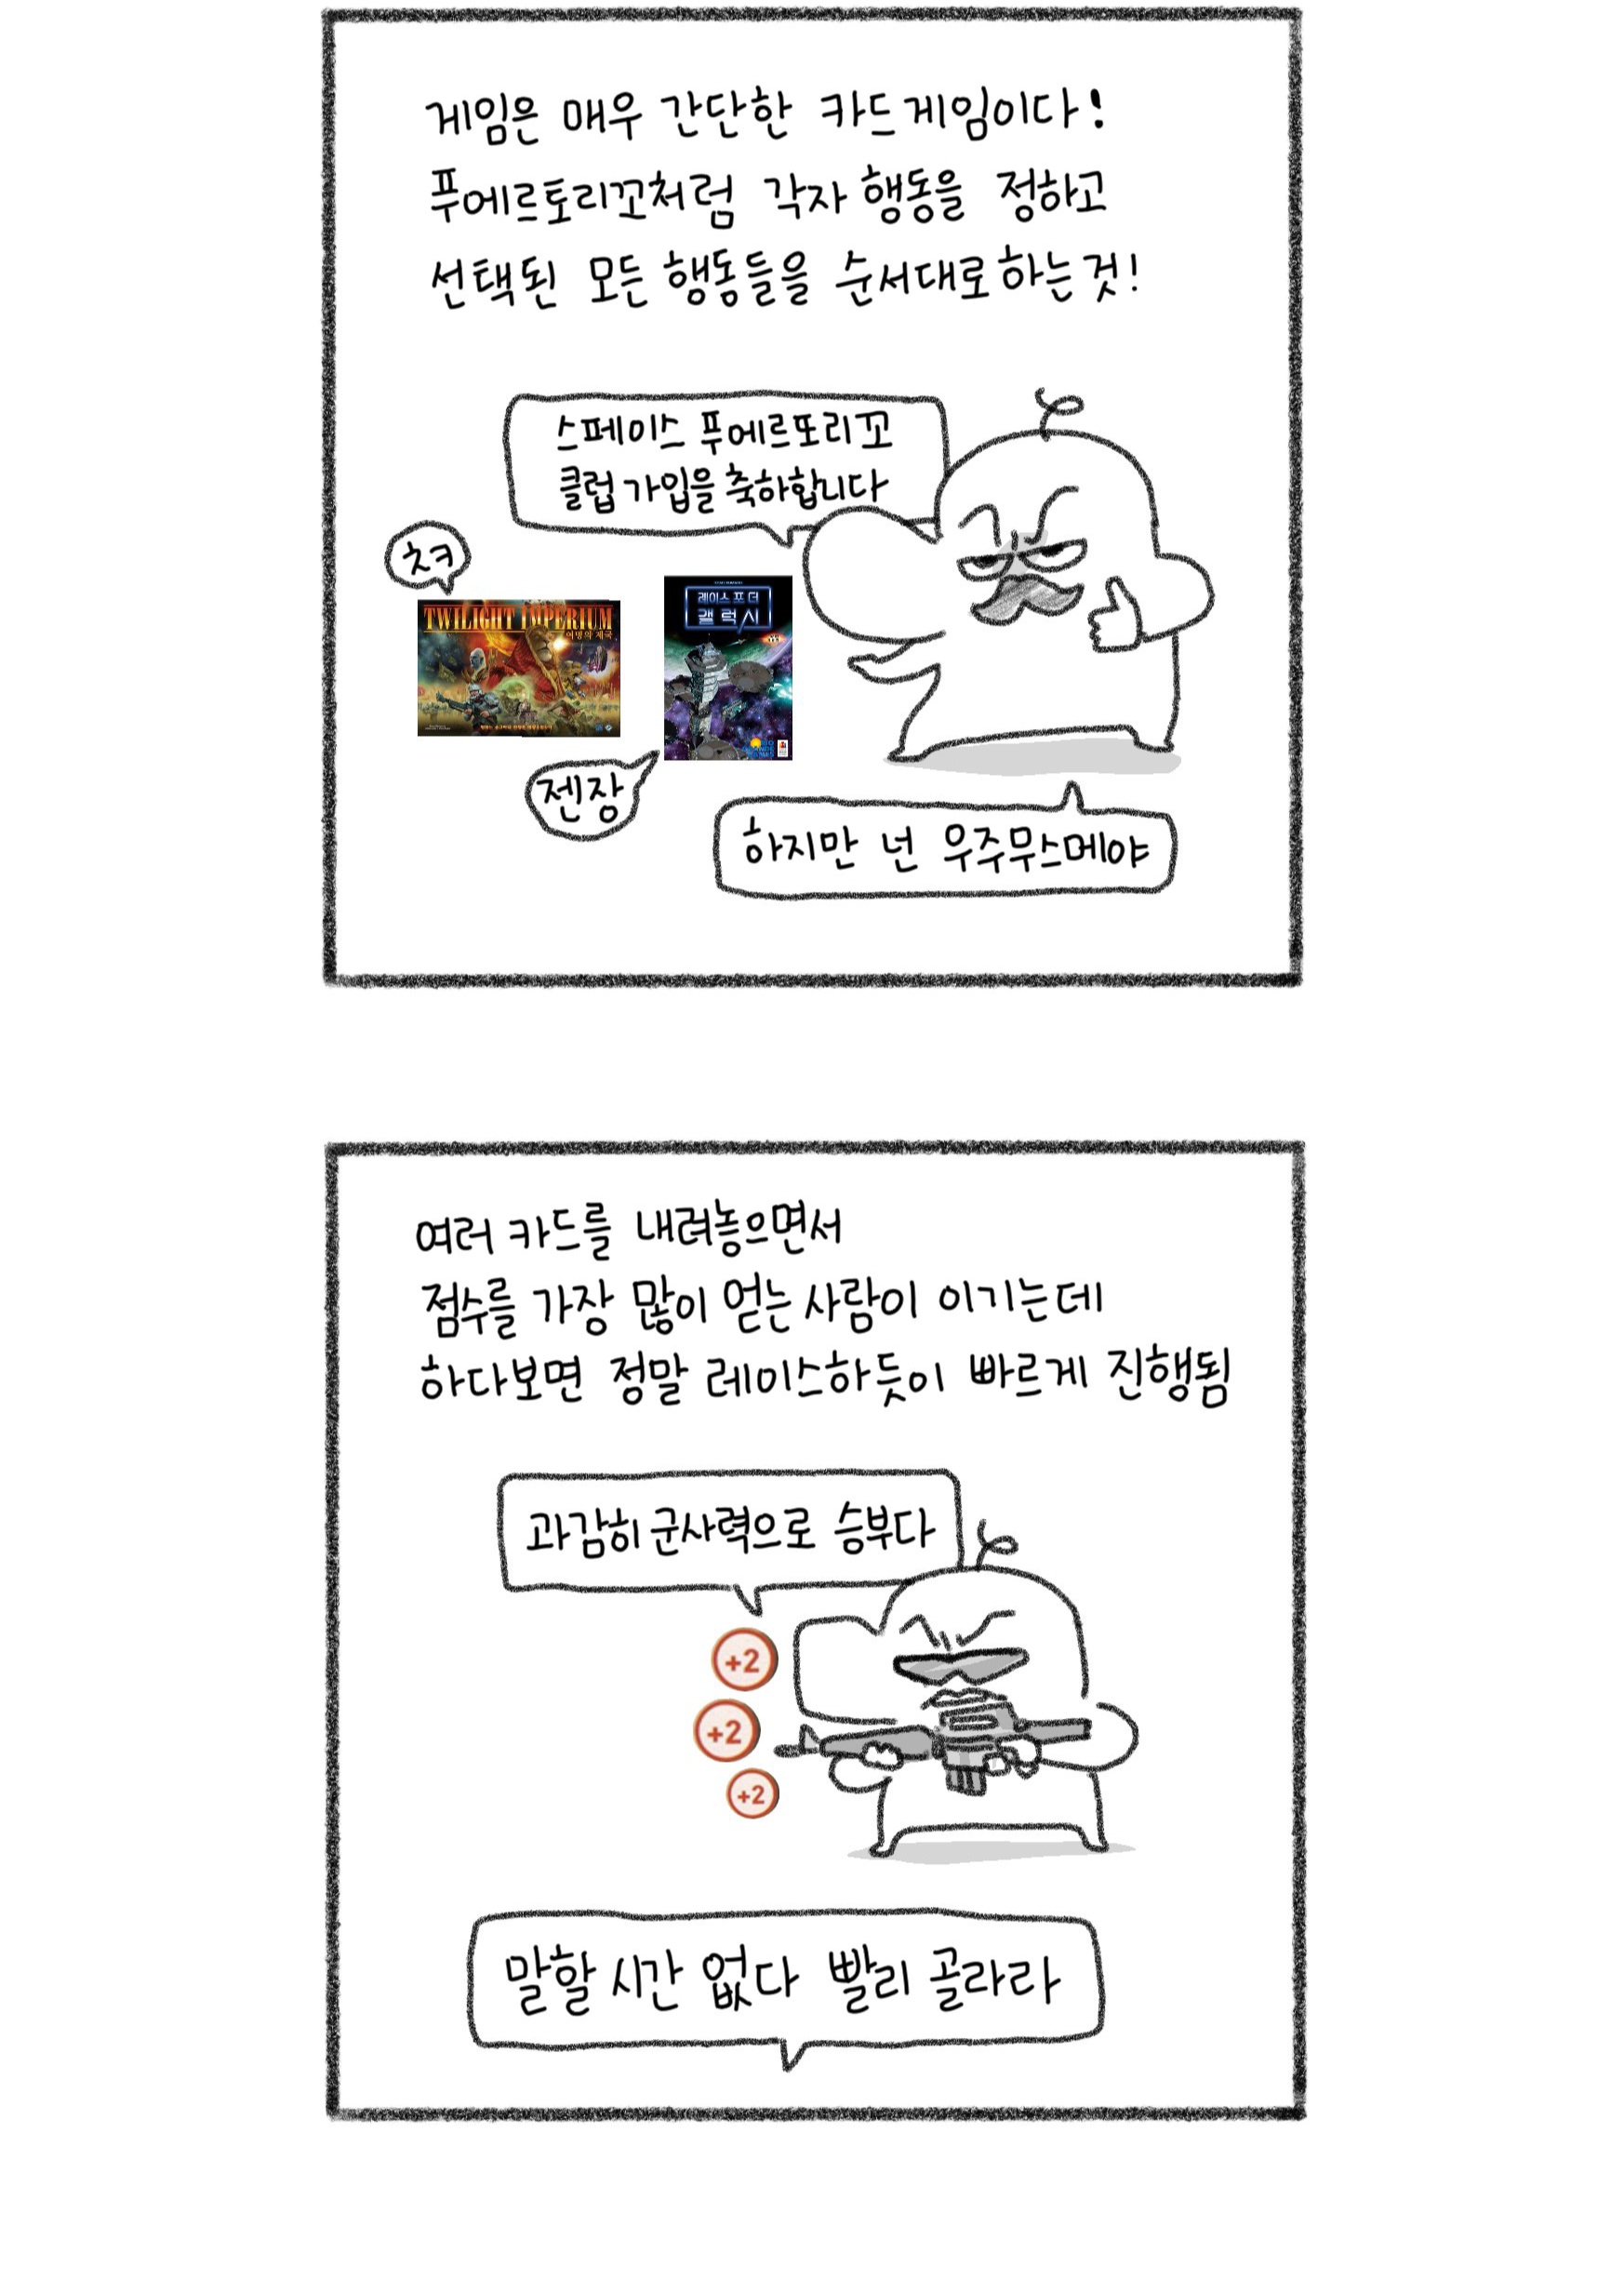 게임은 매우 간단한 카드게임이다!
푸에르토리꼬처럼 각자 행동을 정하고
선택된 모든 행동들을 순서대로하는것!
스페이스 푸에르또리꼬
클럽 가입을 축하합니다
츠킈
TWILIGHT IMPERIUM
여명의 제국
레이스 포 더
갤럭시
젠장
하지만 넌 우주무스메야
여러 카드를 내려놓으면서
점수를 가장 많이 얻는 사람이 이기는데
하다보면 정말 레이스하듯이 빠르게 진행됨
과감히 군사력으로 승부다
+2
+2
+2
말할 시간 없다 빨리 골라라